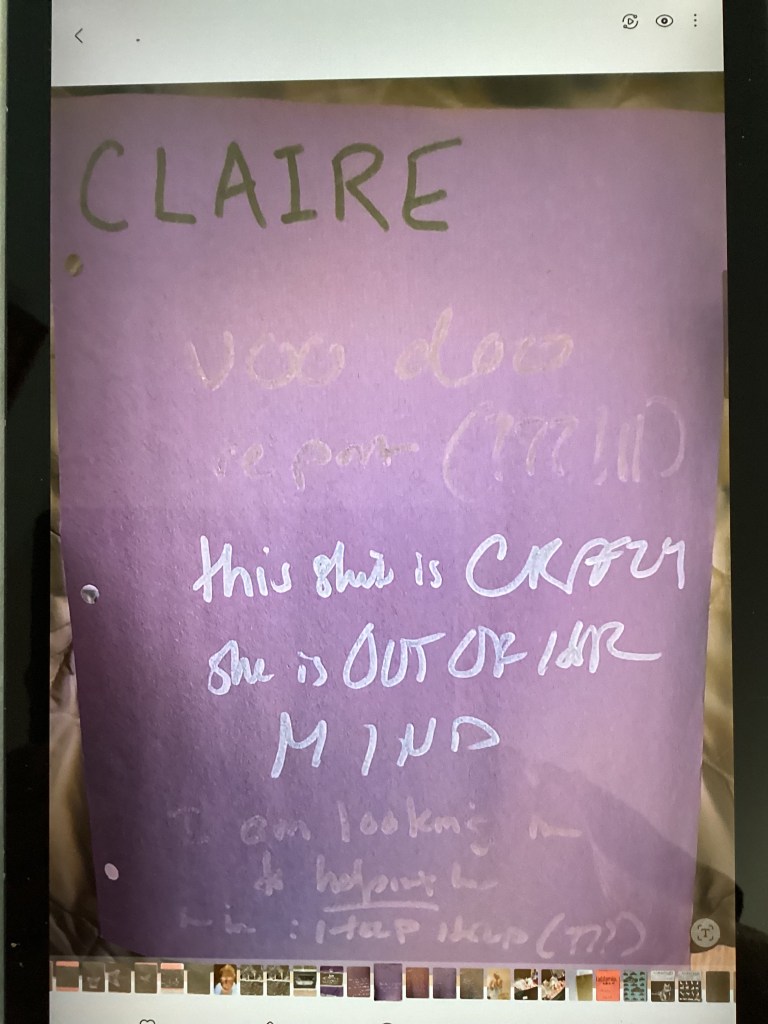 CLAIRE
voo doo
report (!???!!!)
this shit is CRAZY
she is OUT OF HER
MIND
I am looking
to helping
: HELP HELP (???)
T